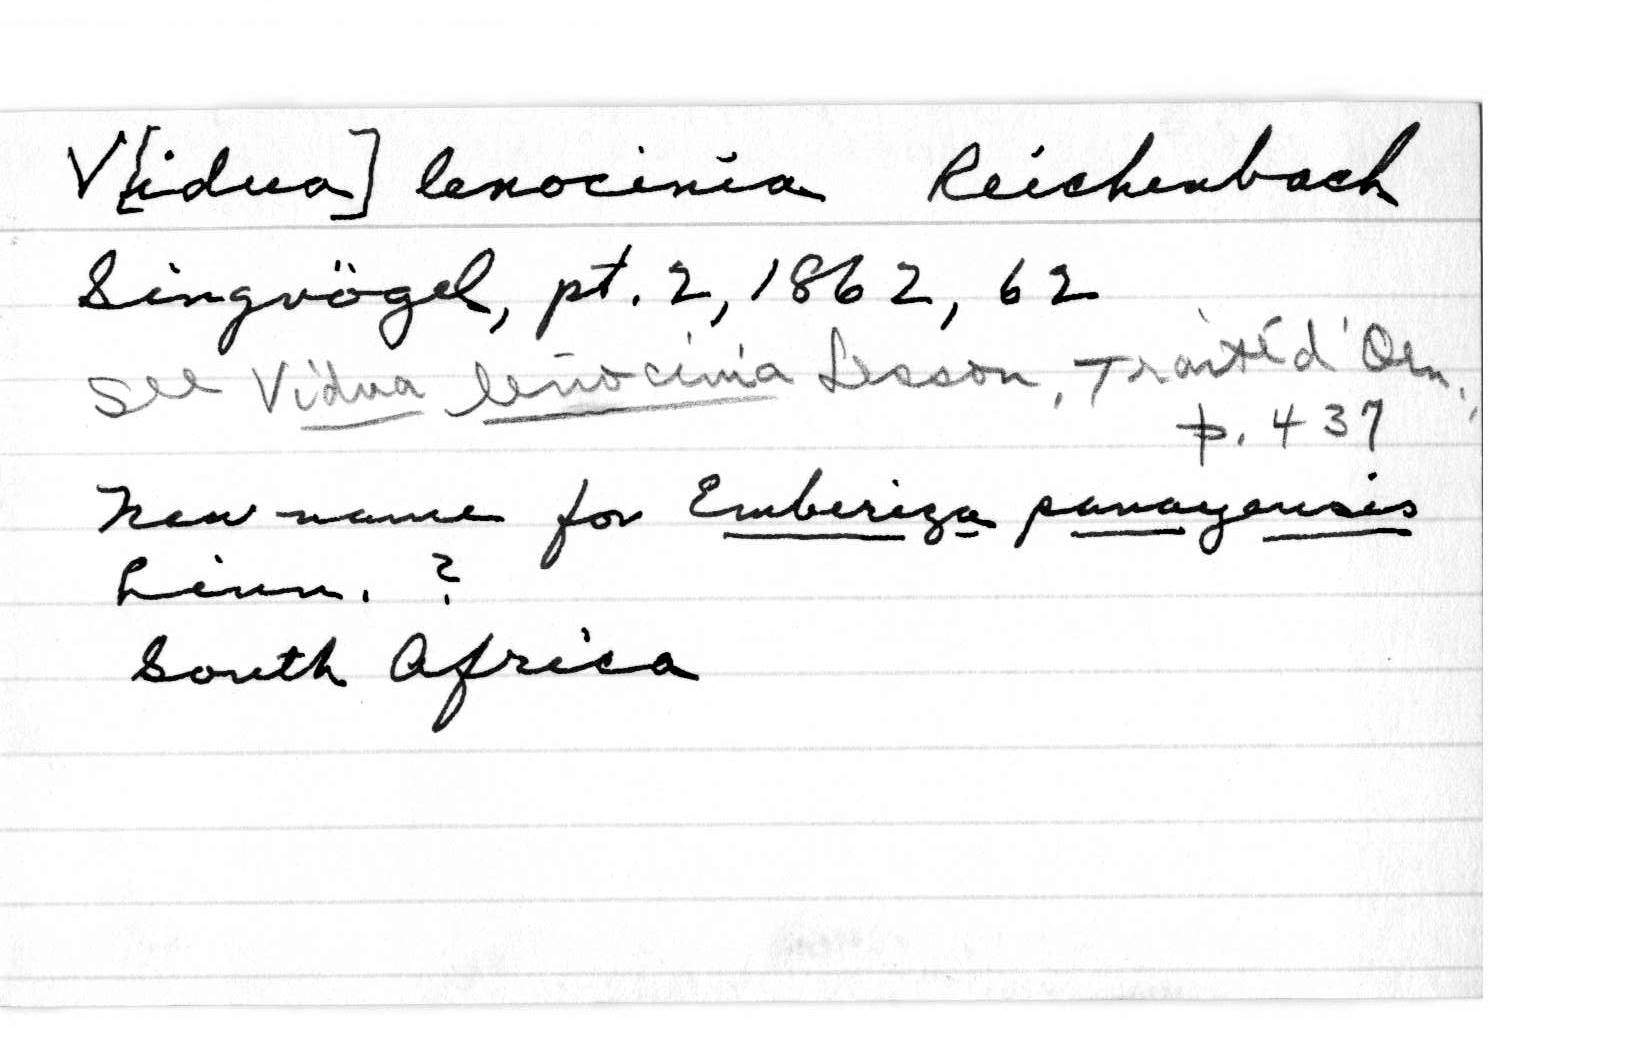 V[idua] lenocinia Reichenbach
Singvögel, pt. 2, 1862, 62
See Vidua lenocinia Lesson, Traité d'Orn.,
p. 437
New name for Emberiza panayensis
Linn. ?
South Africa